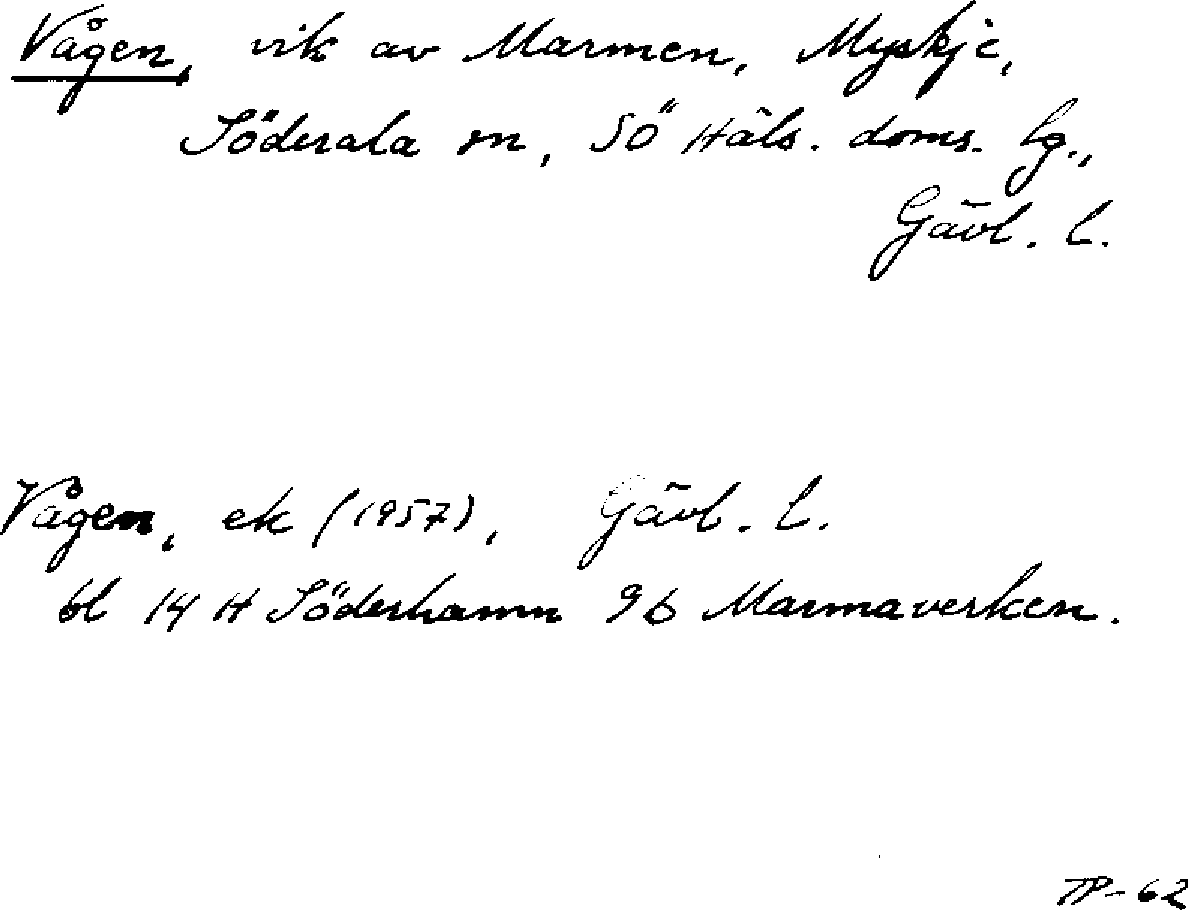 Vågen, vik av Marmen, Myskje,
Söderala sn, SÖ Häls. doms. lg.,
Gävl. l.
Vågen, ek (1957), Gävl. l.
bl 14 H Söderhamn 9b Marmaverken.
TP-62